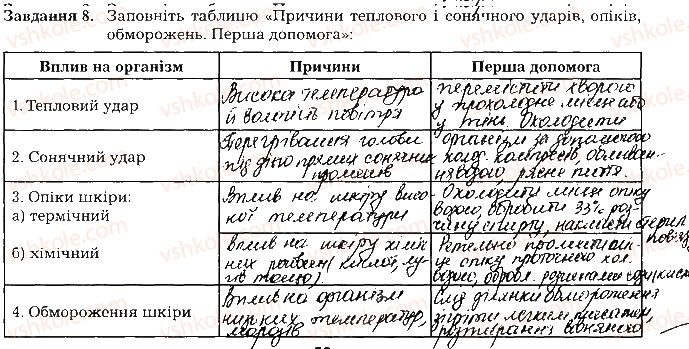 Завдання 8. Заповніть таблицю «Причини теплового і сонячного ударів, опіків,
обморожень. Перша допомога»:
Вплив на організм
Причини
Перша допомога
1. Тепловий удар
Висока температура
й вологість повітря
перемістити хворого
у прохолодне місце або
у тінь. Охолодити
2. Сонячний удар
Перегрівання голови
під дією прямих сонячних
променів
організм за допомогою
холод. компресів, обливан-
ня водою, рясне пиття.
3. Опіки шкіри:
а) термічний
Вплив на шкіру висо-
кої температури
Охолодити місце опіку
водою, обробити 33% роз-
чину спирту, накласти стерил.
пов'язку
б) хімічний
вплив на шкіру хіміч-
них речовин (кислот, лу-
гів тощо).
Ретельно промити
це опіку проточною хол.
водою, обробл. розчинами
4. Обмороження шкіри
Вплив на організм
низьких температур,
морозів
Слід ділянки обмороження
зігріти легким масажем,
розтиранні вовняною